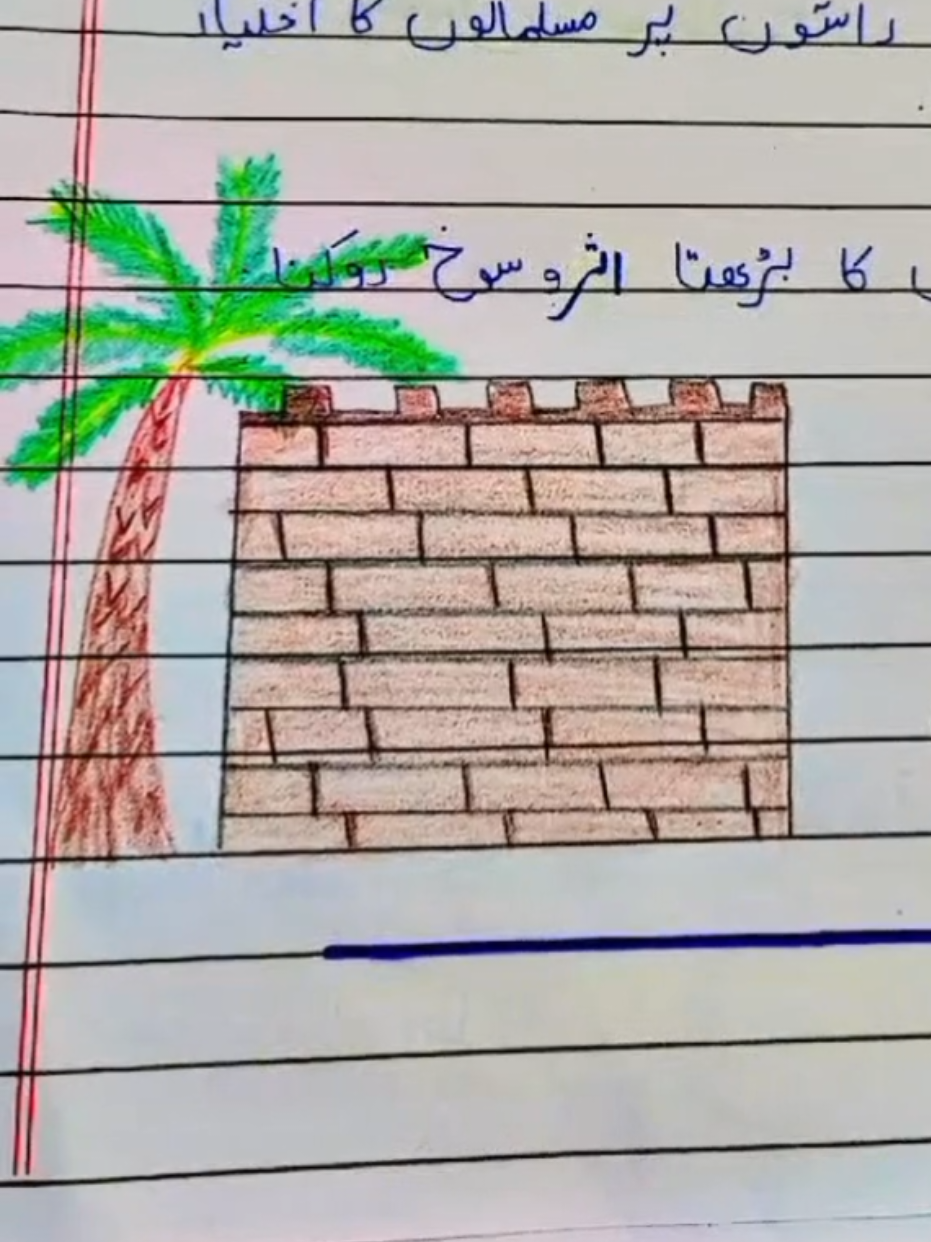 راستوں پر مسلمانوں کا اختیار
کا بڑھتا اثر و سوخ روکنا